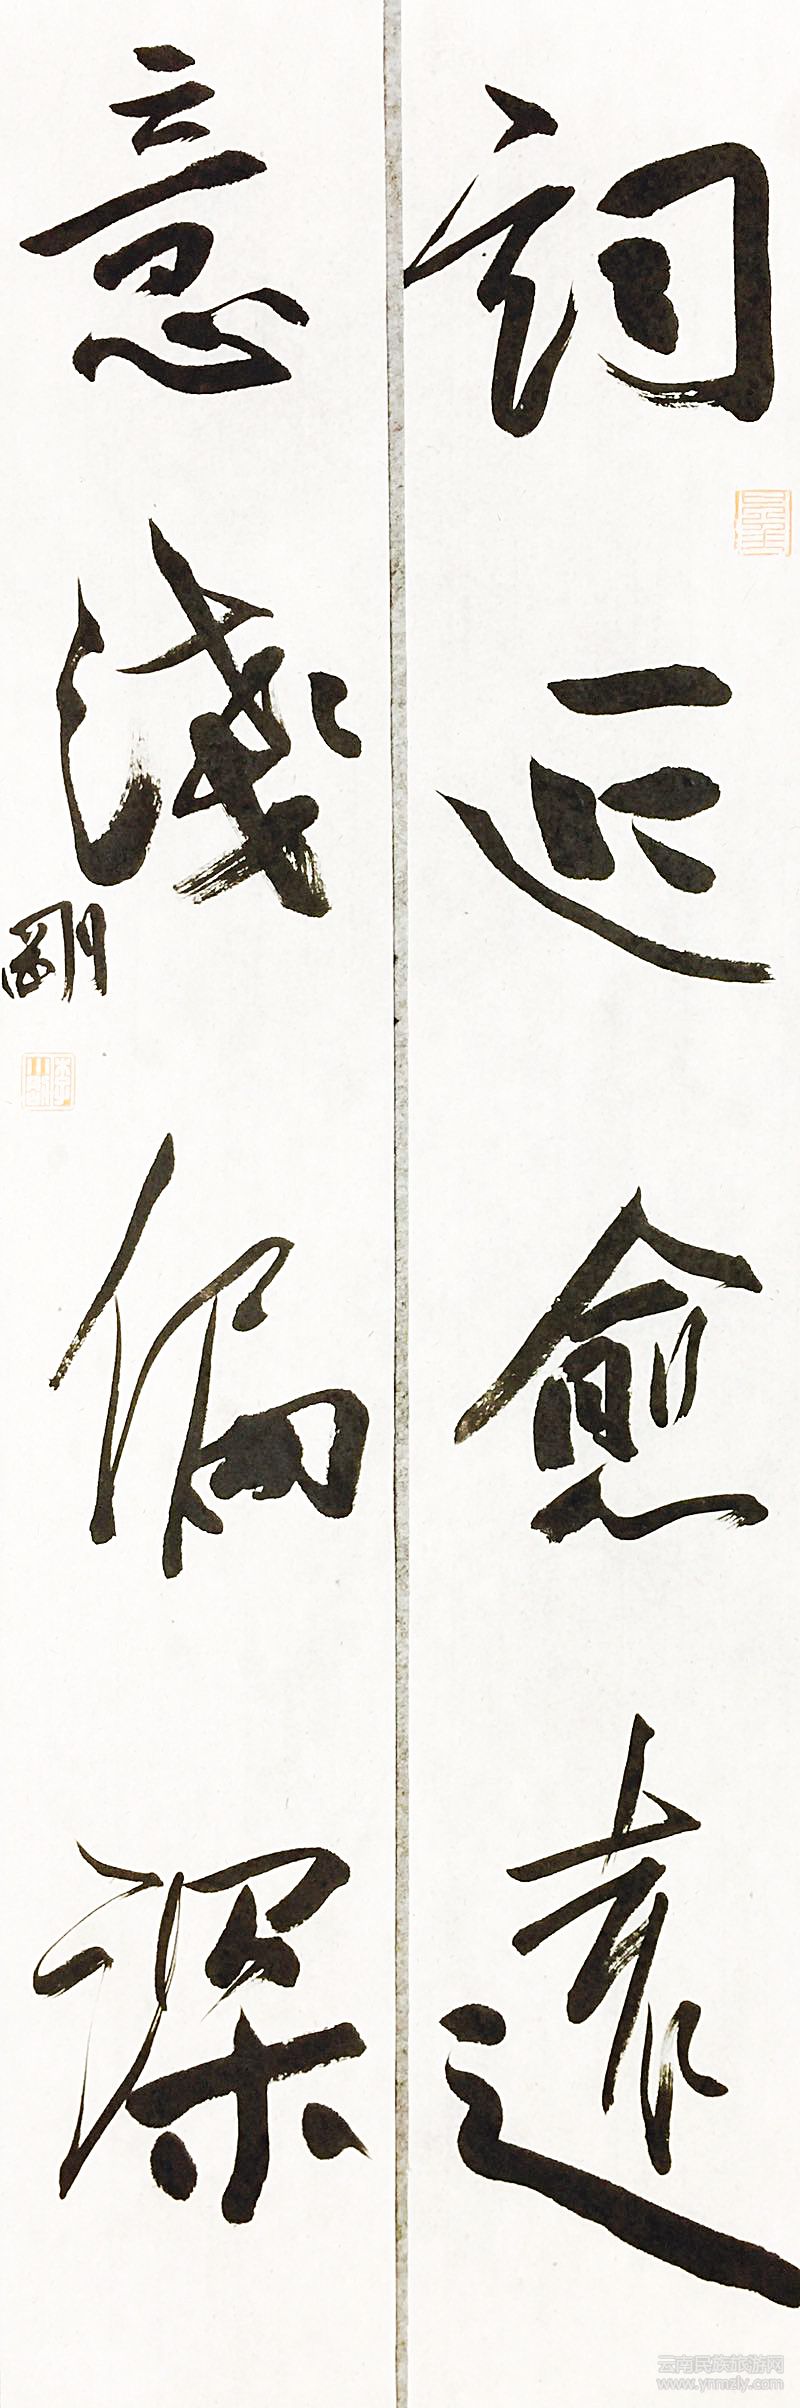 詞近愈遠
意淺偏深
剛
云南民族旅游网
www.ynmzly.com